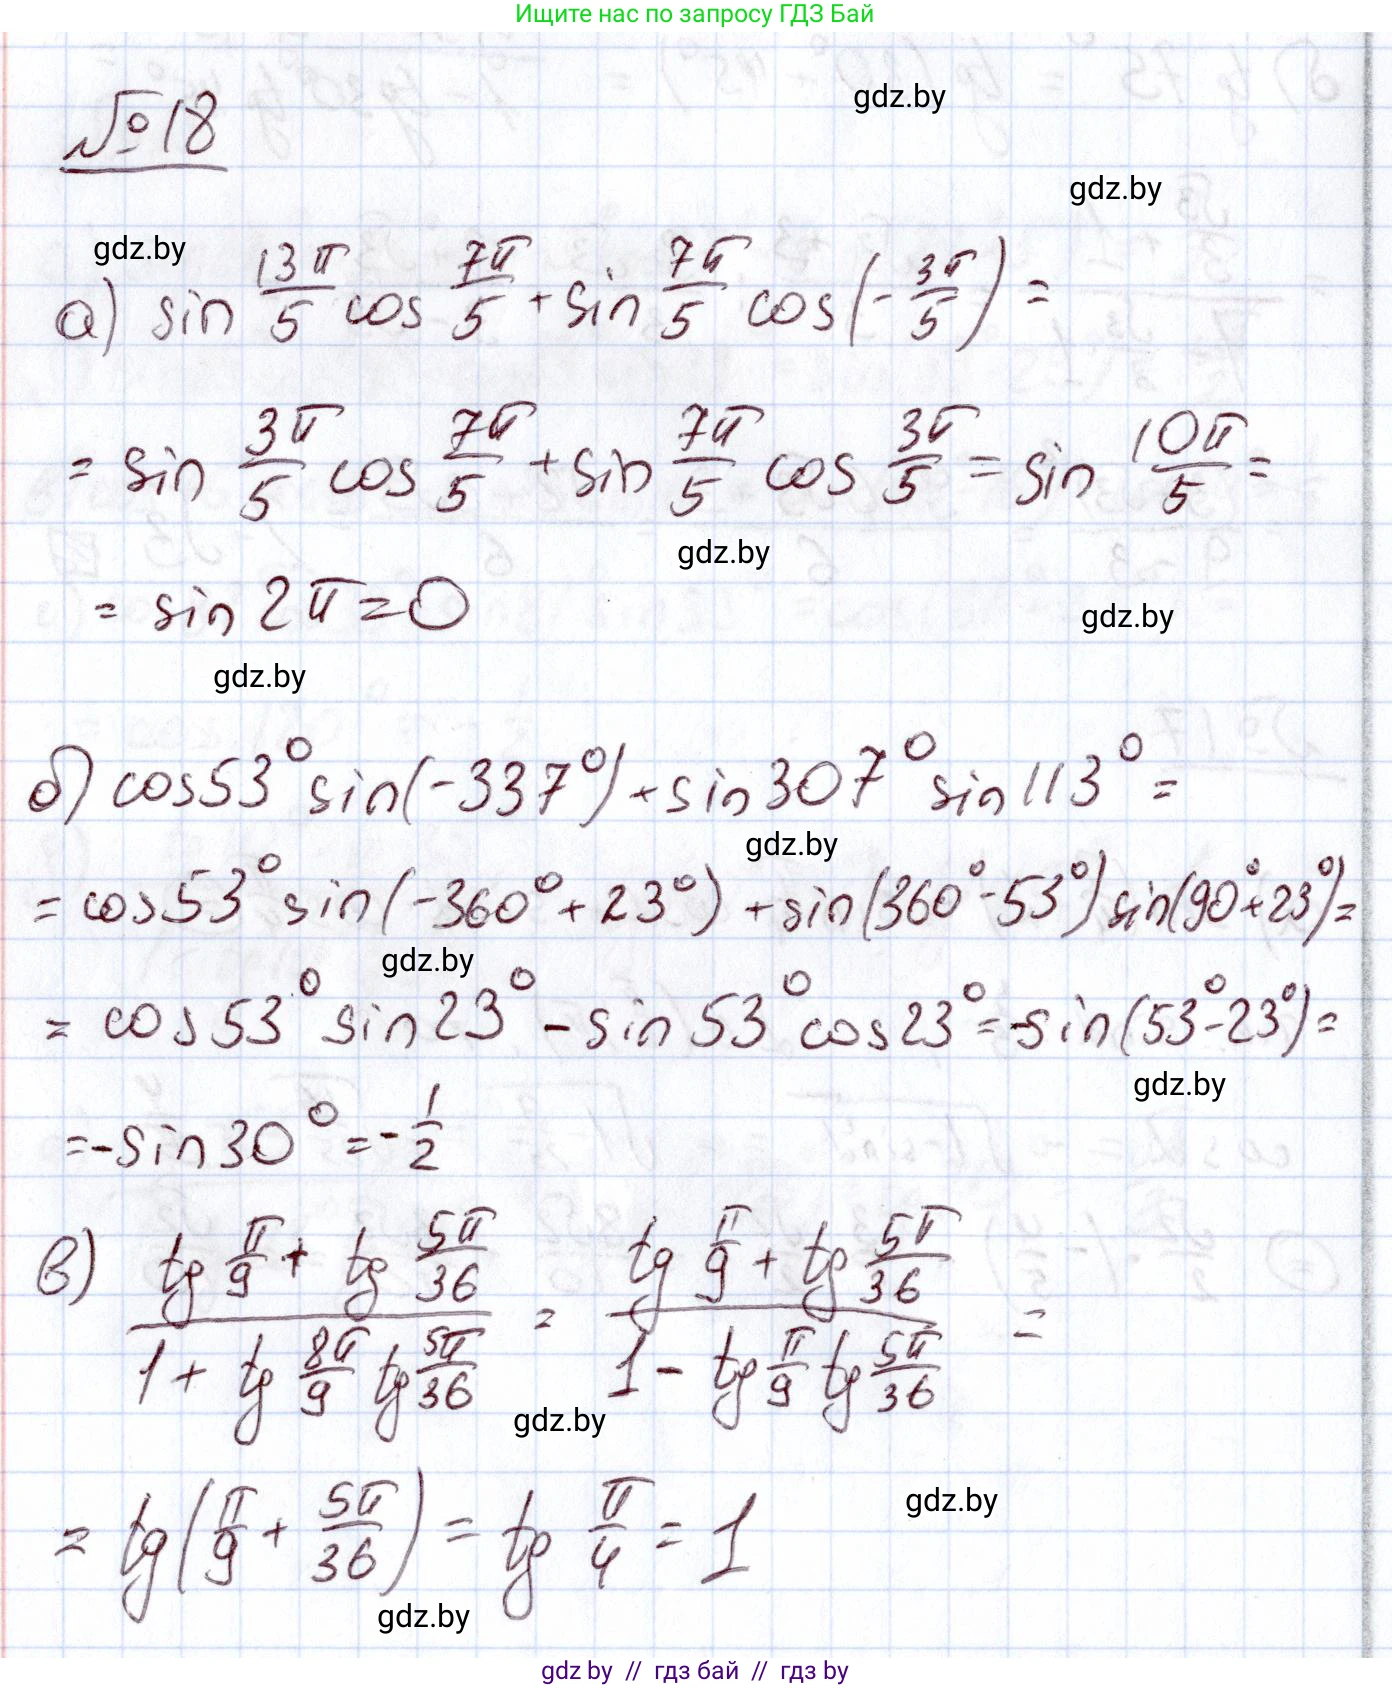 Ищите нас по запросу ГДЗ Бай
gdz.by
№18
gdz.by
gdz.by
а) sin 13π/5 cos 7π/5 + sin 7π/5 cos(-3π/5) =
= sin 3π/5 cos 7π/5 + sin 7π/5 cos 3π/5 = sin 10π/5 =
gdz.by
= sin 2π = 0
gdz.by
gdz.by
б) cos53° sin(-337°) + sin307° sin113° =
gdz.by
= cos53° sin(-360° + 23°) + sin(360° - 53°) sin(90° + 23°) =
gdz.by
= cos53° sin23° - sin53° cos23° = -sin(53° - 23°) =
gdz.by
= -sin30° = -1/2
в) (tg π/9 + tg 5π/36)/(1 + tg 8π/9 tg 5π/36) = (tg π/9 + tg 5π/36)/(1 - tg π/9 tg 5π/36) =
gdz.by
gdz.by
= tg(π/9 + 5π/36) = tg π/4 = 1
gdz.by
gdz by // гдз бай // гдз by